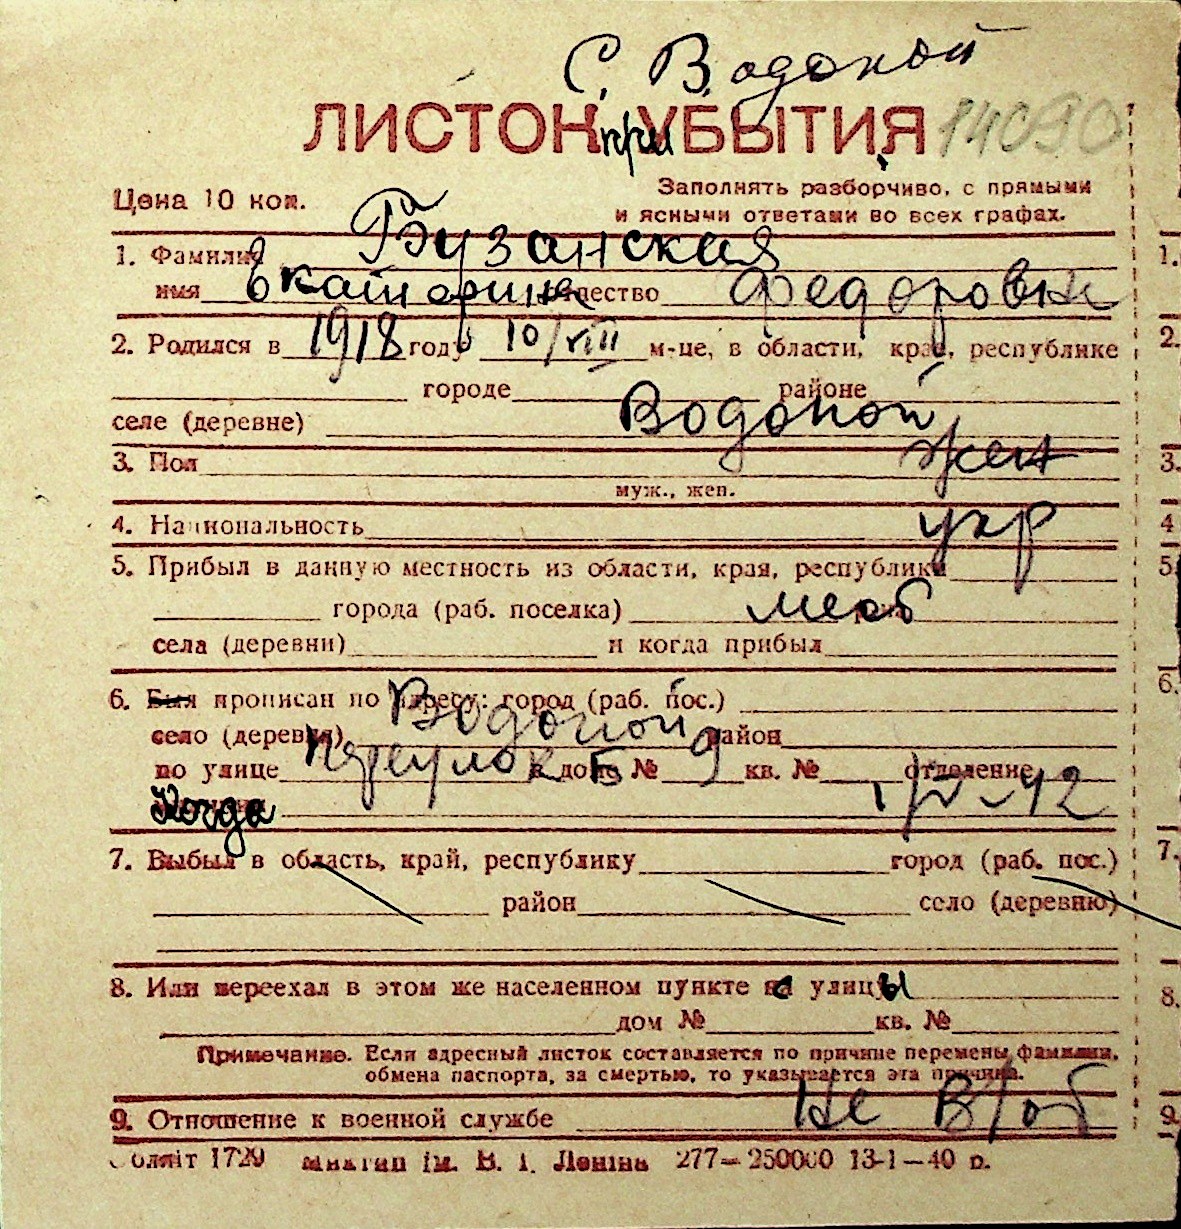 С. Водопой
ЛИСТОК при УБЫТИЯ 14090
Цена 10 коп. Заполнять разборчиво, с прямыми
и ясными ответами во всех графах.
1. Фамилия Бузанская
имя Екатерина отчество Федоровн
2. Родился в 1918 году 10/VIII м-це, в области, края, республике
городе районе
селе (деревне) Водопой
3. Пол жен
муж., жен.
4. Национальность укр
5. Прибыл в данную местность из области, края, республики
города (раб. поселка) места
села (деревни) и когда прибыл
6. Был прописан по адресу: город (раб. пос.)
село (деревня) Водопой район
по улице переулок Б дом № 9 кв. № отделение
Когда 1/IV-42
7. Выбыл в область, край, республику город (раб. пос.)
район село (деревню)
8. Или переехал в этом же населенном пункте с улицы
дом № кв. №
Примечание. Если адресный листок составляется по причине перемены фамилии,
обмена паспорта, за смертью, то указывается эта причина.
9. Отношение к военной службе не в/об
Облліт 1729 ім. В. І. Леніна 277—250000 13-1—40 р.
14
1.
2.
3.
4
5.
6.
7.
8.
9.